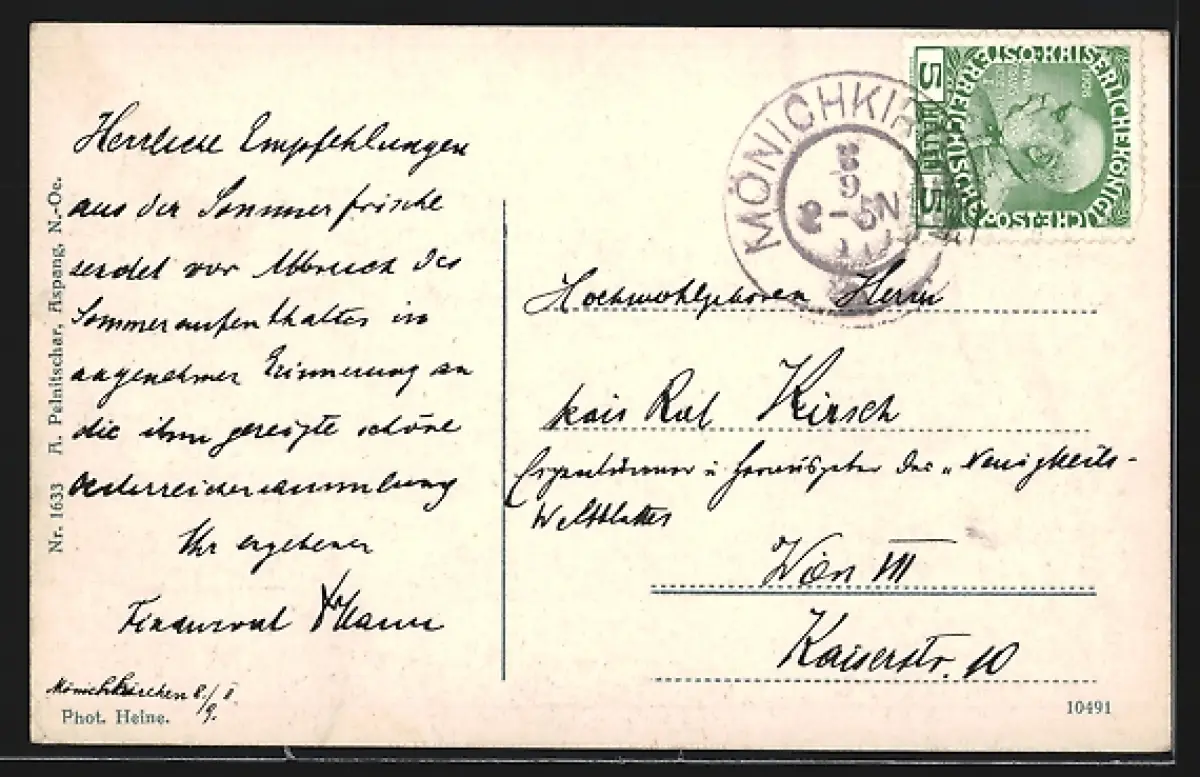 Herrliche Empfehlungen
aus der Sommerfrische
sendet vor Abbruch des
Sommeraufenthaltes in
angenehmer Erinnerung an
die ihm gezeigte schöne
Österreichersammlung
Ihr ergebener
Finanzrat
Mönichkirchen 8./
9.
Phot. Heine.
Nr. 1633 A. Pelnitschar, Aspang, N.-Oe.
MÖNICHKIR
5 HELLER 5
KAISERLICHE KÖNIGLICHE
ÖSTERREICHISCHE POST
1908
Hochwohlgeboren Herrn
kais Rat Kirsch
Eigentümer u Herausgeber des „Neuigkeits-
Weltblattes
Wien VII
Kaiserstr. 10
10491